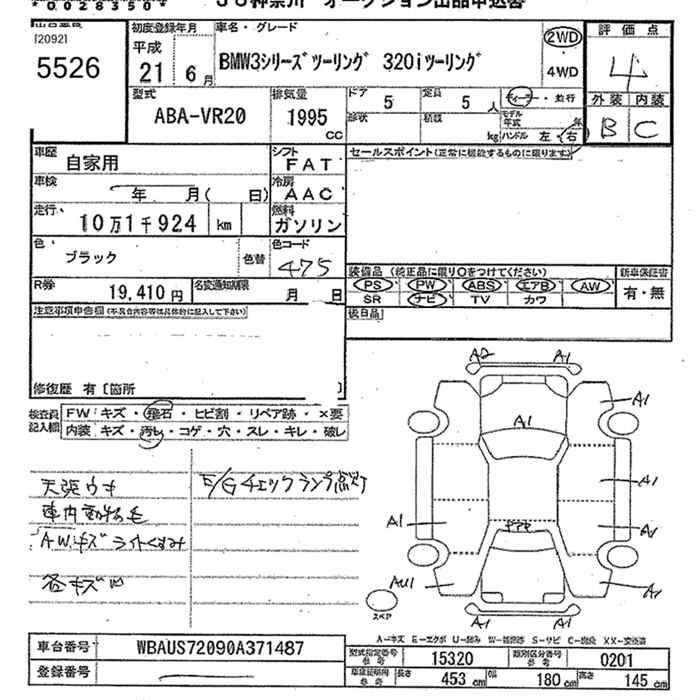 *00283504*
JU神奈川 オークション出品申込書
[2092]
5526
初度登録年月
平成
21年 6月
車名・グレード
BMW3シリーズツーリング 320iツーリング
2WD
4WD
評価点
4
外装 内装
B C
型式
ABA-VR20
排気量
1995
CC
ドア
5
定員
5人
ディーラー・並行
形状
積載
kg
モデル年式
年
ハンドル 左・右
車歴
自家用
シフト
FAT
車検
年 月( 日)
冷房
AAC
走行
10万1千924 km
燃料
ガソリン
色
ブラック
色替
色コード
475
R券
19,410円
名変通知期限
月 日
セールスポイント(正常に機能するものに限ります)
装備品 (純正品に限り○をつけてください)
PS PW ABS エアB AW
SR ナビ TV カワ
新車保証書
有・無
後日品
注意事項申告欄(不具合内容等は具体的に記入して下さい)
修復歴 有〔箇所 〕
検査員記入欄
FW:キズ・飛石・ヒビ割・リペア跡・×要
内装:キズ・汚れ・コゲ・穴・スレ・キレ・破レ
天張ウキ
車内動物毛
A.W.キズ ライトくすみ
各キズ凹
E/Gチェックランプ点灯
A2 A1
A1
A1
A1
A1
A1
A1
AU1
A1
A1 A1
スペア
A-キズ E-エクボ U-凹み W-補修跡 S-サビ C-腐食 XX-交換済
車台番号
WBAUS72090A371487
登録番号
型式指定番号
参考
15320
類別区分番号
参考
0201
車検証明用
参考
長さ
453 cm
幅
180 cm
高さ
145 cm